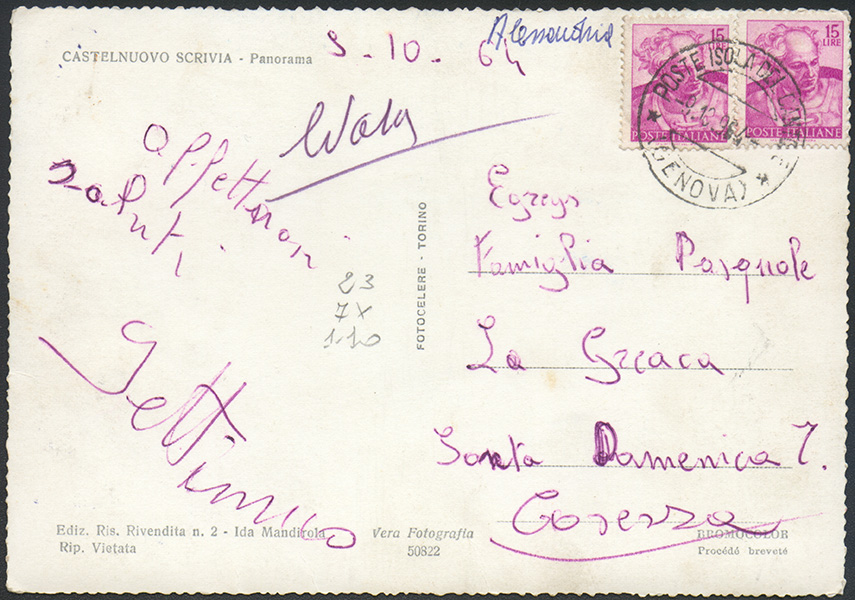 CASTELNUOVO SCRIVIA - Panorama
Alessandria
3-10-64
15
LIRE
15
LIRE
POSTE ITALIANE
POSTE ITALIANE
POSTE ISOLA DEL
(GENOVA)
Affettuosi
saluti
Settimio
23
7x
1.10
FOTOCELERE - TORINO
Famiglia Pasquale
La Greaca
Santa Damenica T.
Cosezza
Ediz. Ris. Rivendita n. 2 - Ida Mandirola
Rip. Vietata
Vera Fotografia
50822
BROMOCOLOR
Procédé breveté